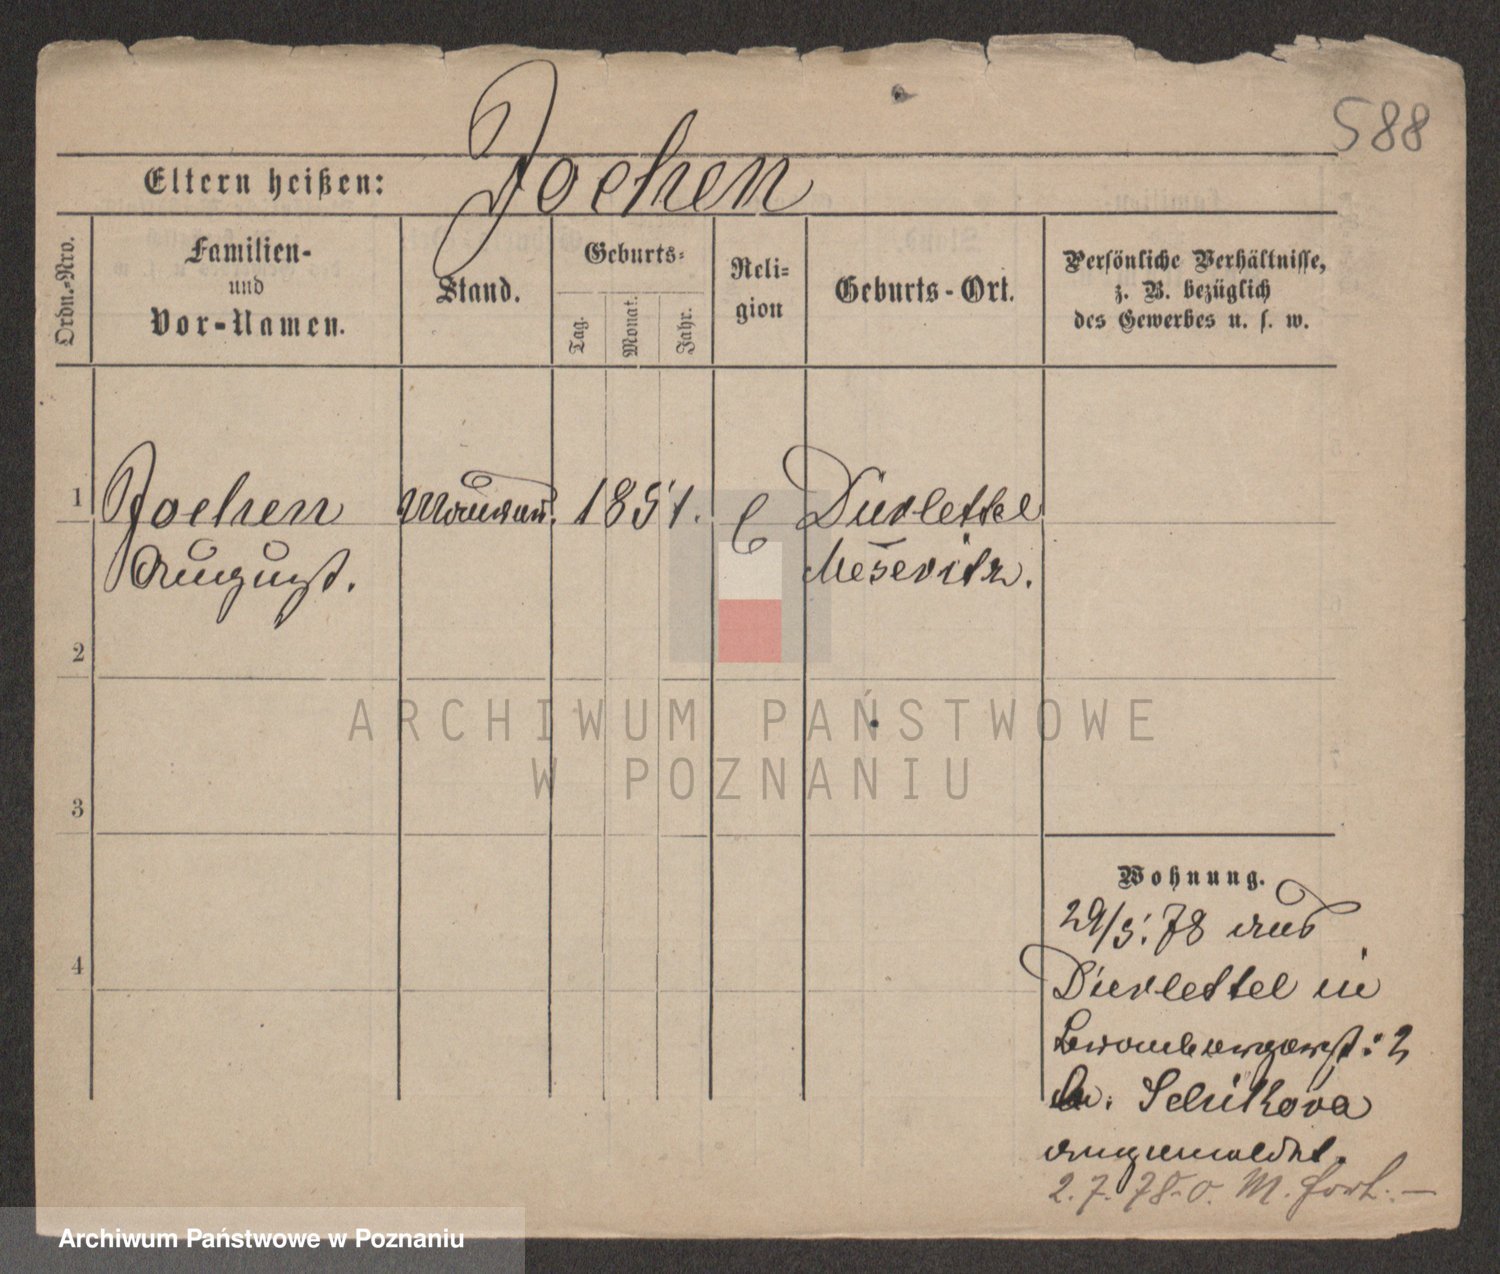 588
Eltern heißen: Jochen
Ordn.-Nro.
Familien-
und
Vor-Namen.
Stand.
Geburts-
Tag.
Monat.
Jahr.
Reli-
gion
Geburts-Ort.
Persönliche Verhältnisse,
z. B. bezüglich
des Gewerbes u. s. w.
1 Jochen Maurer 1851. C Dürlettel
August. Meseritz.
2
3
4
ARCHIWUM PAŃSTWOWE
W POZNANIU
Wohnung.
29/5. 78 aus
Dürlettel in
Brombergerst: 2
b. Schikora
angemeldet.
2. 7. 78. o. M. fort. —
Archiwum Państwowe w Poznaniu